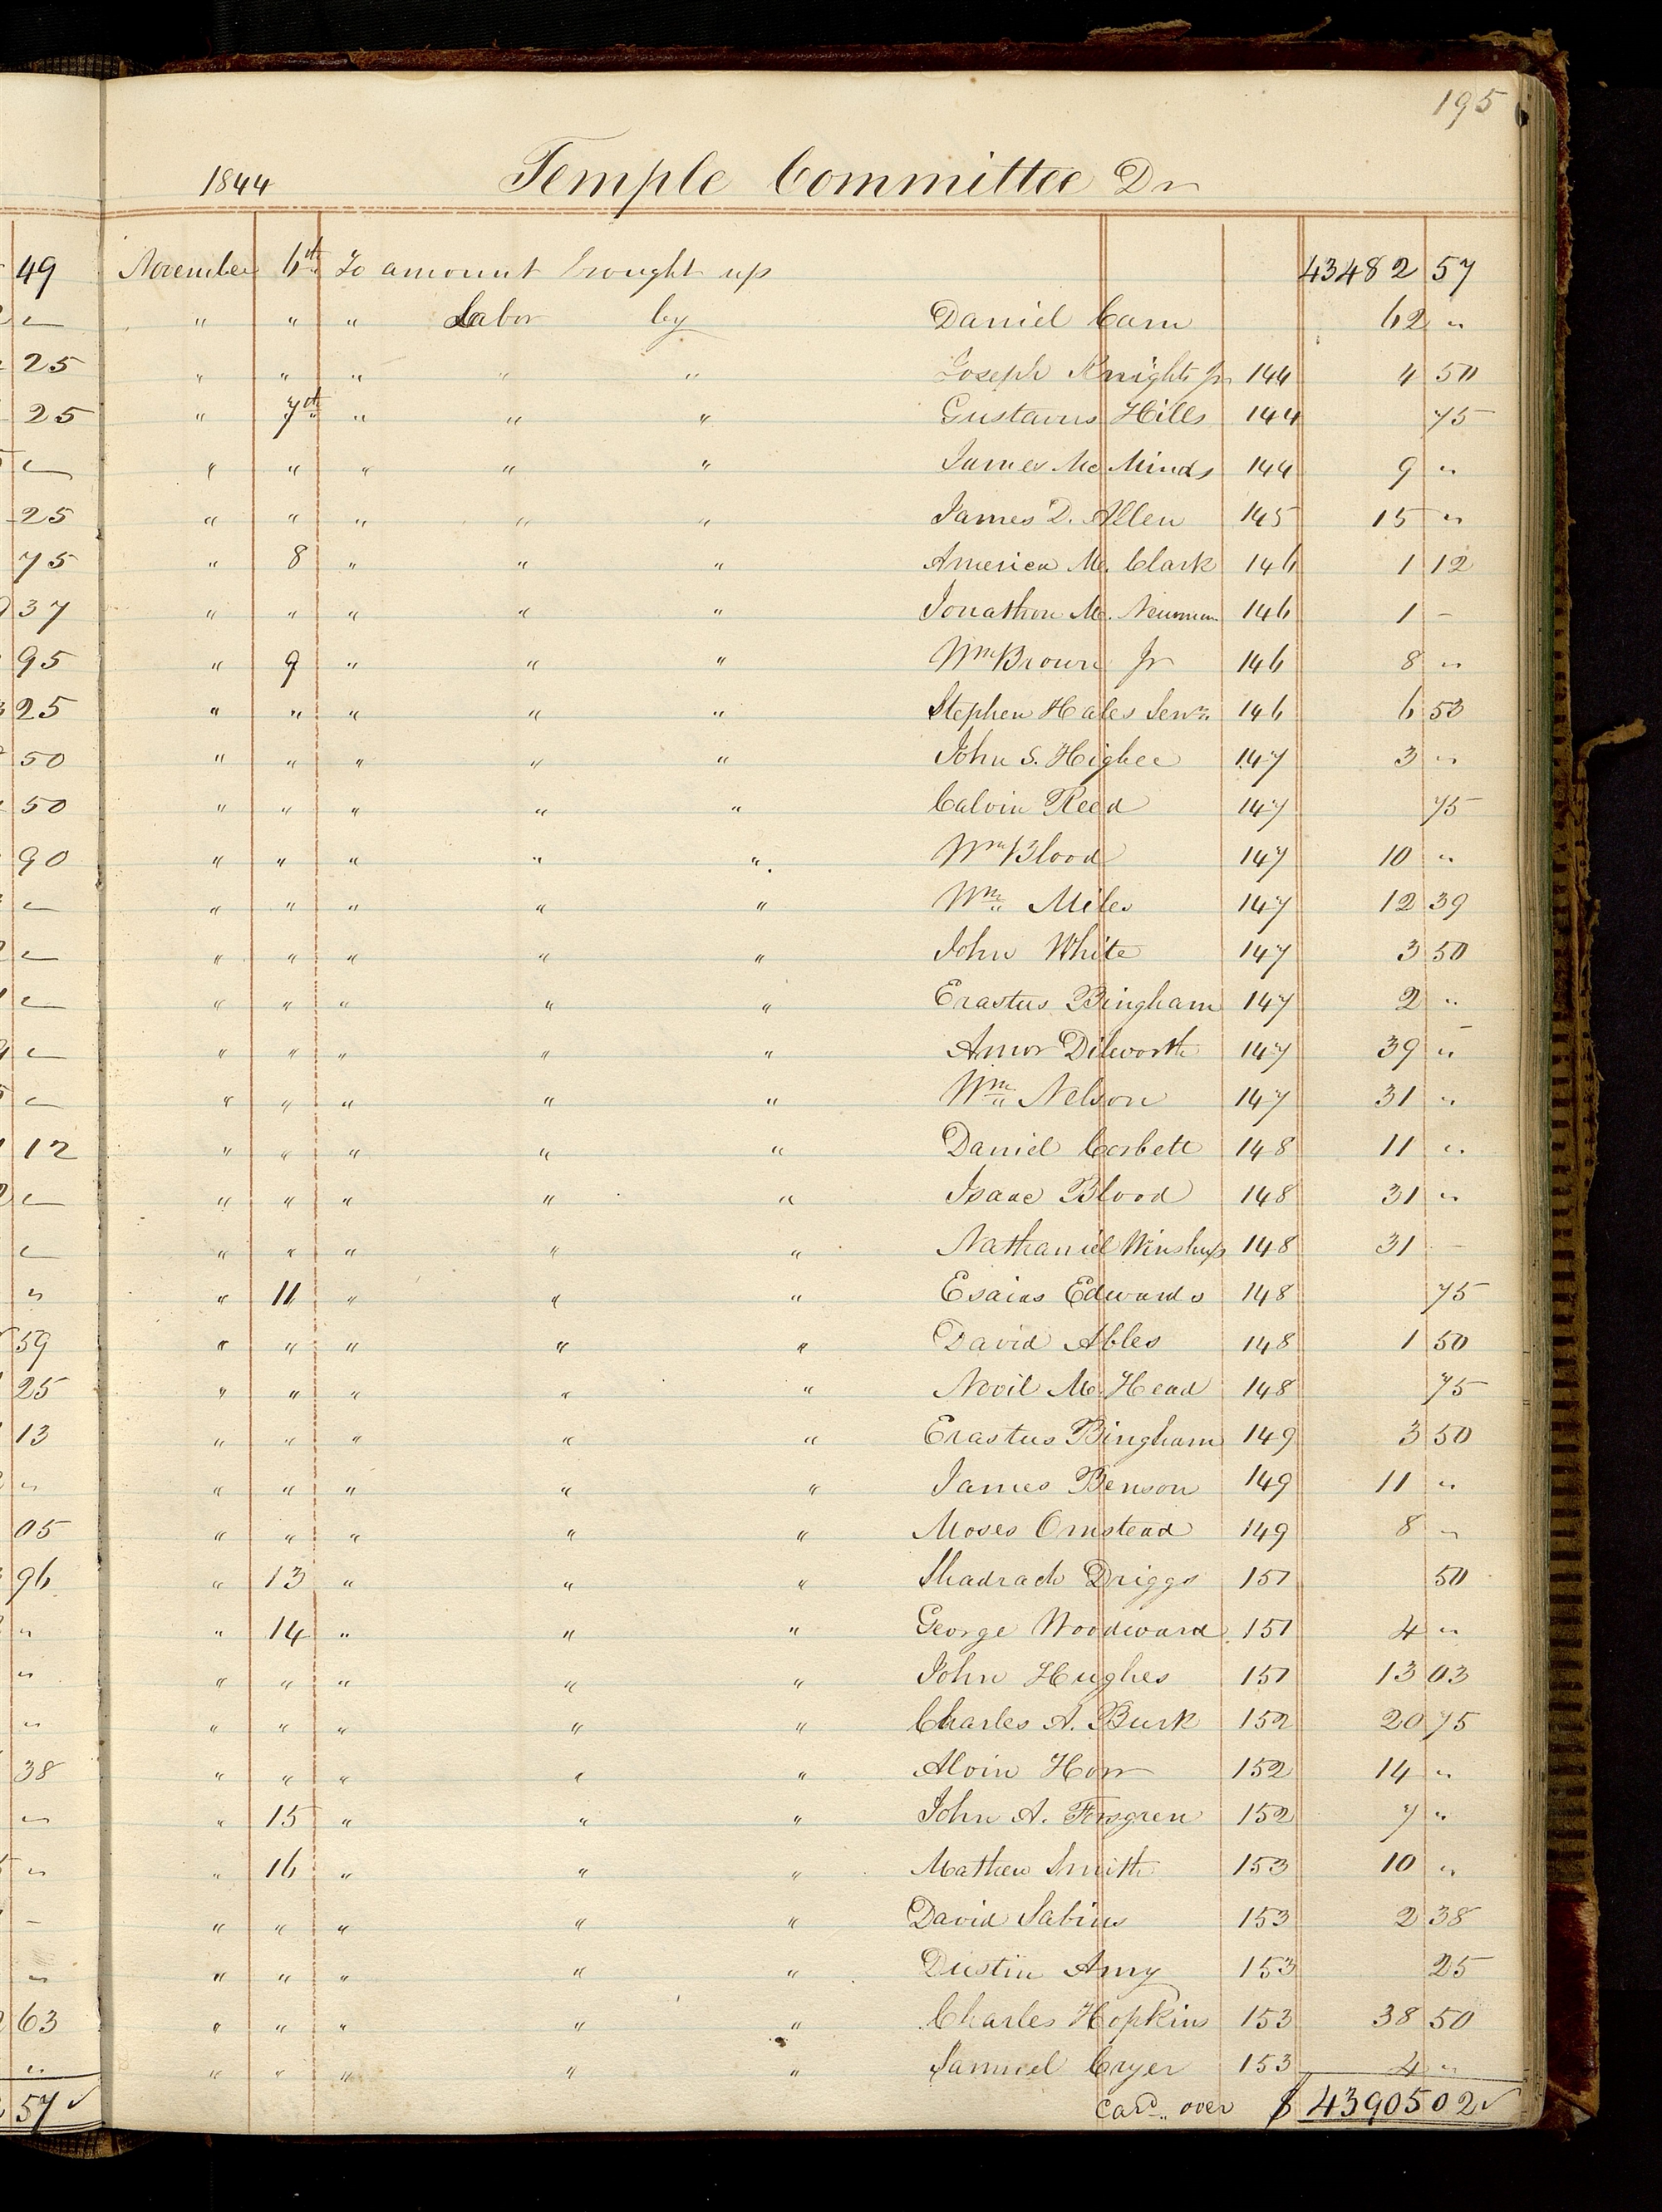 195
1844 Temple Committee Dr
49 November 6th To amount brought up 43482 57
" " " Labor by Daniel Carn 62 "
25 " " " " " Joseph Knight Jr 144 4 50
25 " 7th " " " Gustavus Hills 144 75
" " " " " James McMinds 144 9 "
25 " " " " " James D. Allen 145 15 "
75 " 8 " " " America M. Clark 146 1 12
37 " " " " " Jonathon M. Neuman 146 1 –
95 " 9 " " " Wm Brown Jr 146 8 "
25 " " " " " Stephen Hales Senr. 146 6 53
50 " " " " " John S. Higbee 147 3 "
50 " " " " " Calvin Reed 147 75
90 " " " " " Wm Blood 147 10 "
" " " " " Wm Miles 147 12 39
" " " " " John White 147 3 50
" " " " " Erastus Bingham 147 2 "
" " " " " Amor Dilworth 147 39 "
" " " " " Wm Nelson 147 31 "
12 " " " " " Daniel Corbett 148 11 "
" " " " " Isaac Blood 148 31 "
" " " " " Nathaniel Winship 148 31 –
" " 11 " " " Esaias Edwards 148 75
59 " " " " " David Ables 148 1 50
25 " " " " " Novil M. Head 148 75
13 " " " " " Erastus Bingham 149 3 50
" " " " " " James Benson 149 11 "
05 " " " " " Moses Omstead 149 8 "
96 " 13 " " " Shadrach Driggs 151 50
" " 14 " " " George Woodward 151 4 "
" " " " " " John Hughes 151 13 03
" " " " " " Charles A. Burk 152 20 75
38 " " " " " Alvin Horr 152 14 "
" " 15 " " " John A. Forsgren 152 7 "
" " 16 " " " Mathew Smith 153 10 "
– " " " " " David Sabins 153 2 38
" " " " " " Dustin Amy 153 25
63 " " " " " Charles Hopkins 153 38 50
" " " " " " Samuel Cryer 153 4 "
57 ✓ Card. over $ 43905 02 ✓